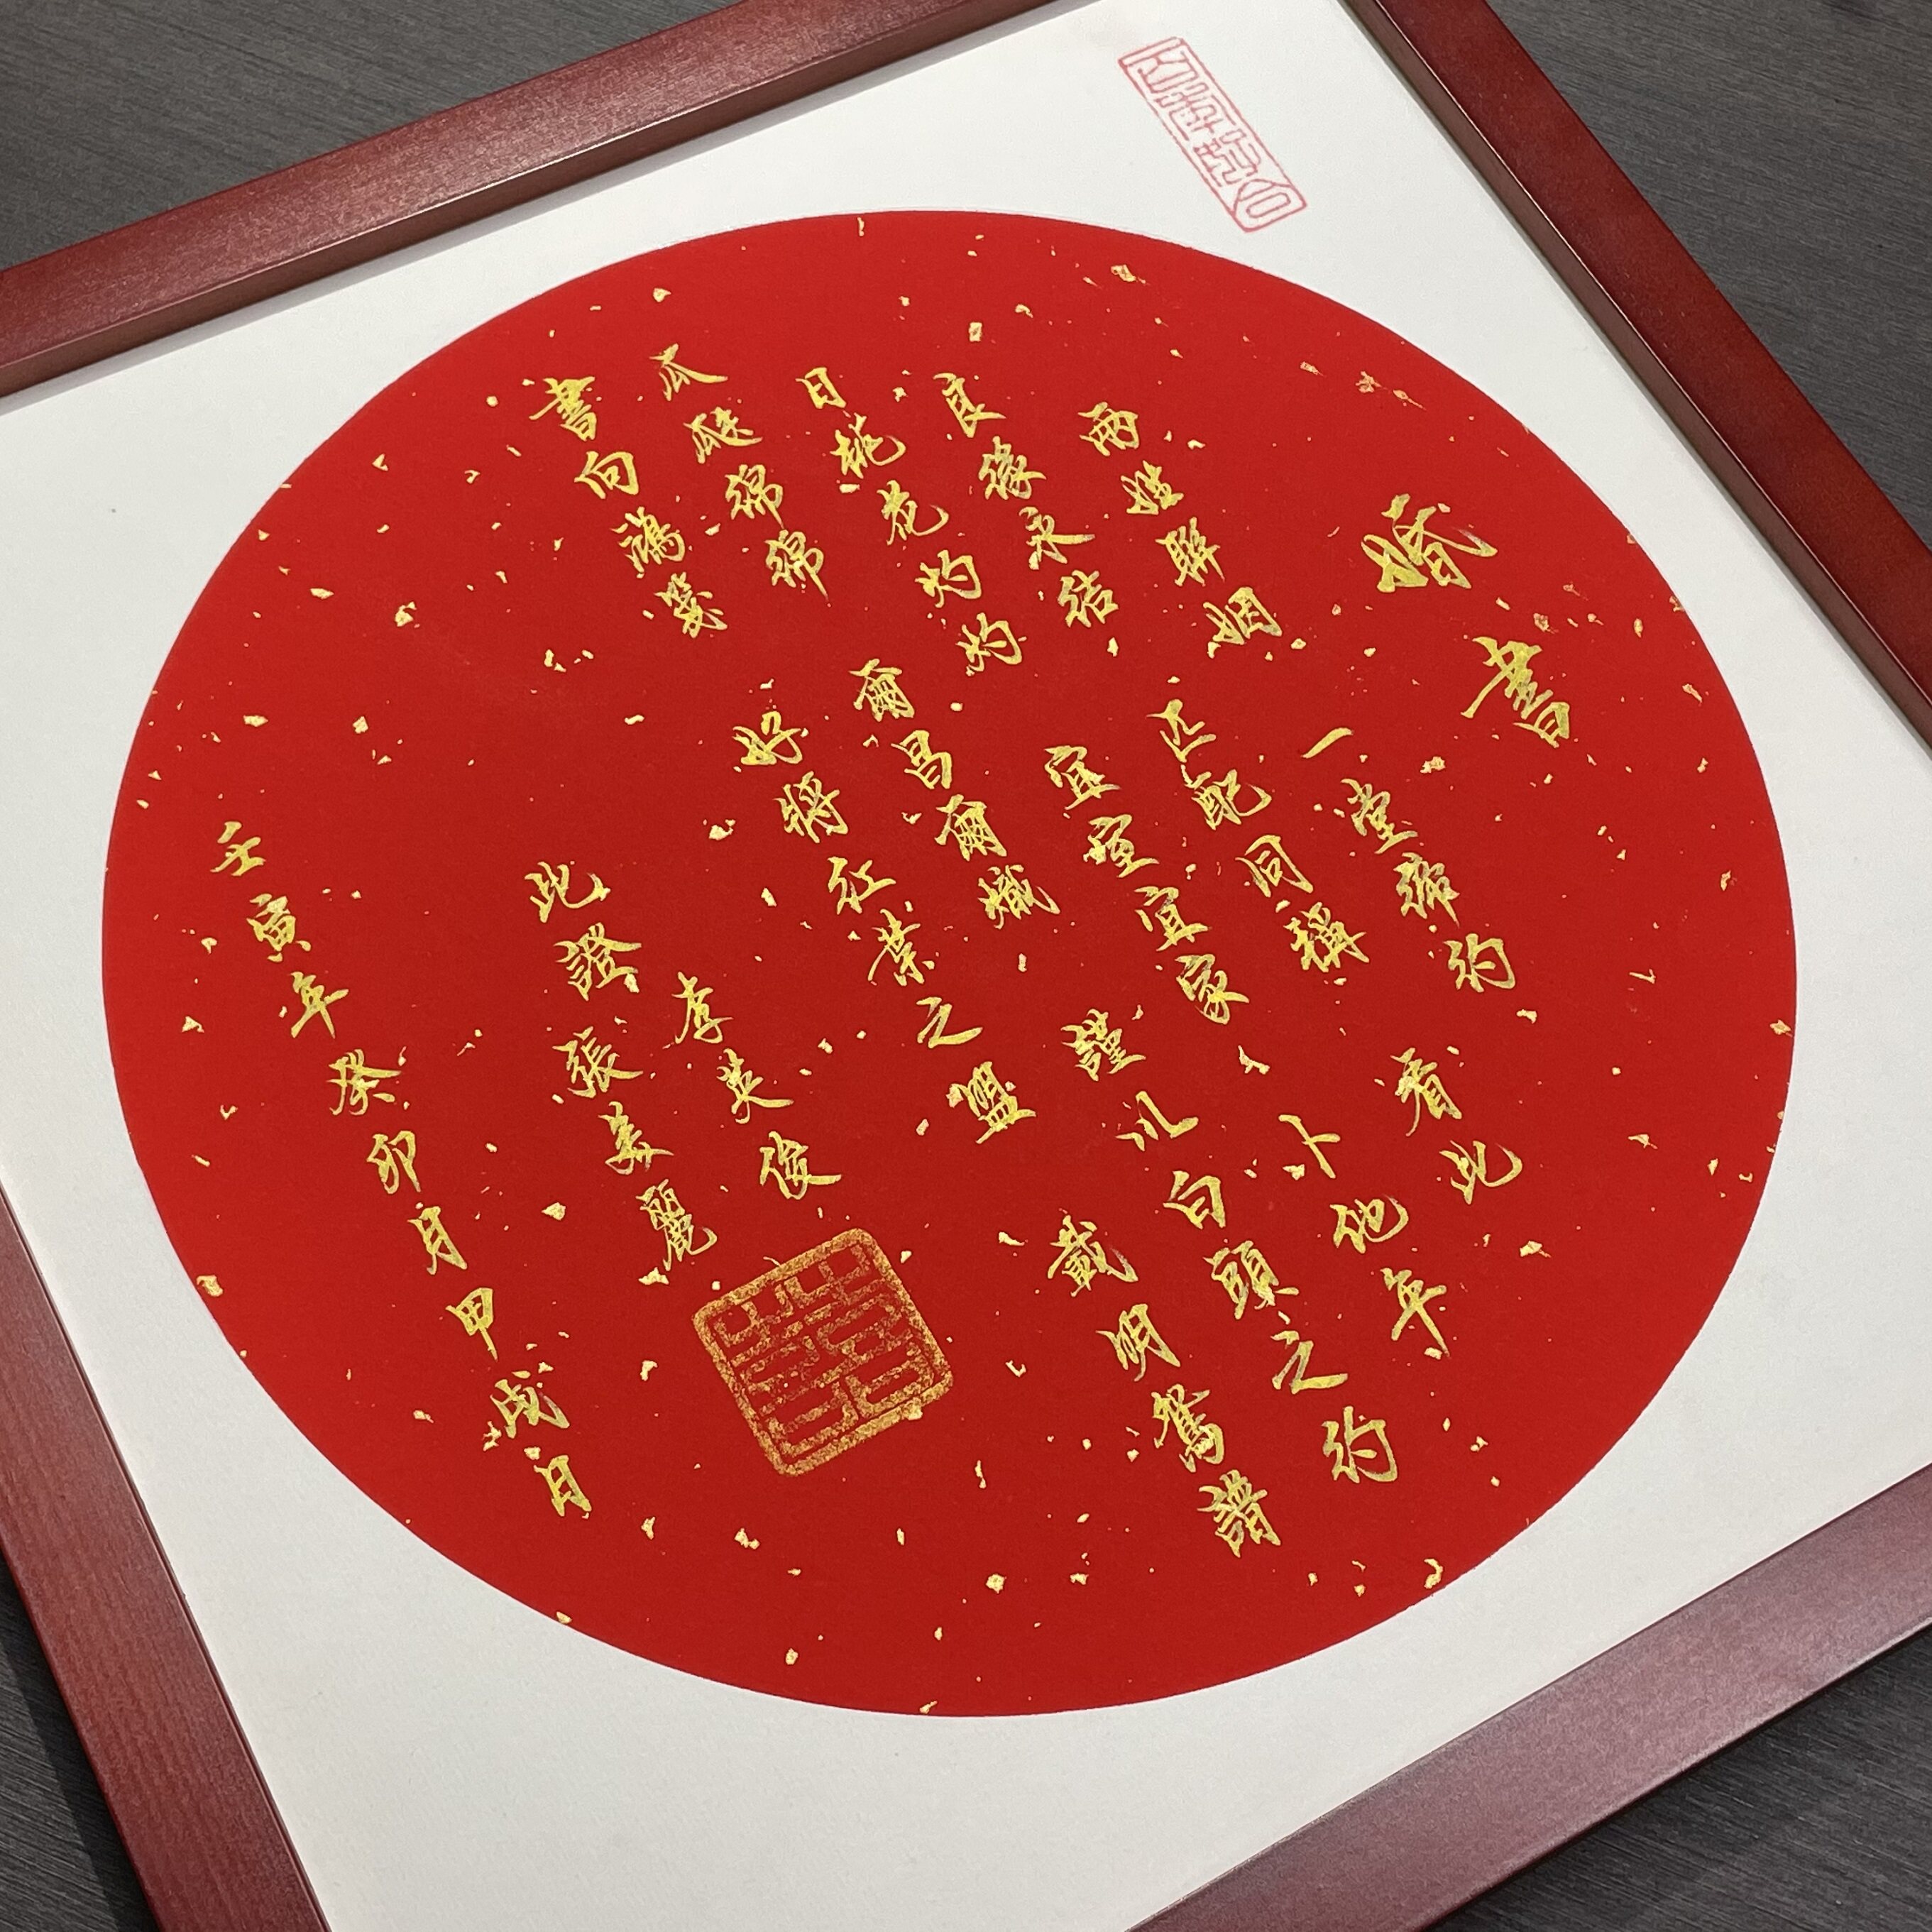 婚書
兩姓聯姻一堂締約
良緣永結匹配同稱看此
日桃花灼灼宜室宜家卜他年
瓜瓞綿綿爾昌爾熾謹以白頭之約
書向鴻箋好將紅葉之盟載明鴛譜
此證
李英俊
張美麗
囍
壬寅年癸卯月甲戌日